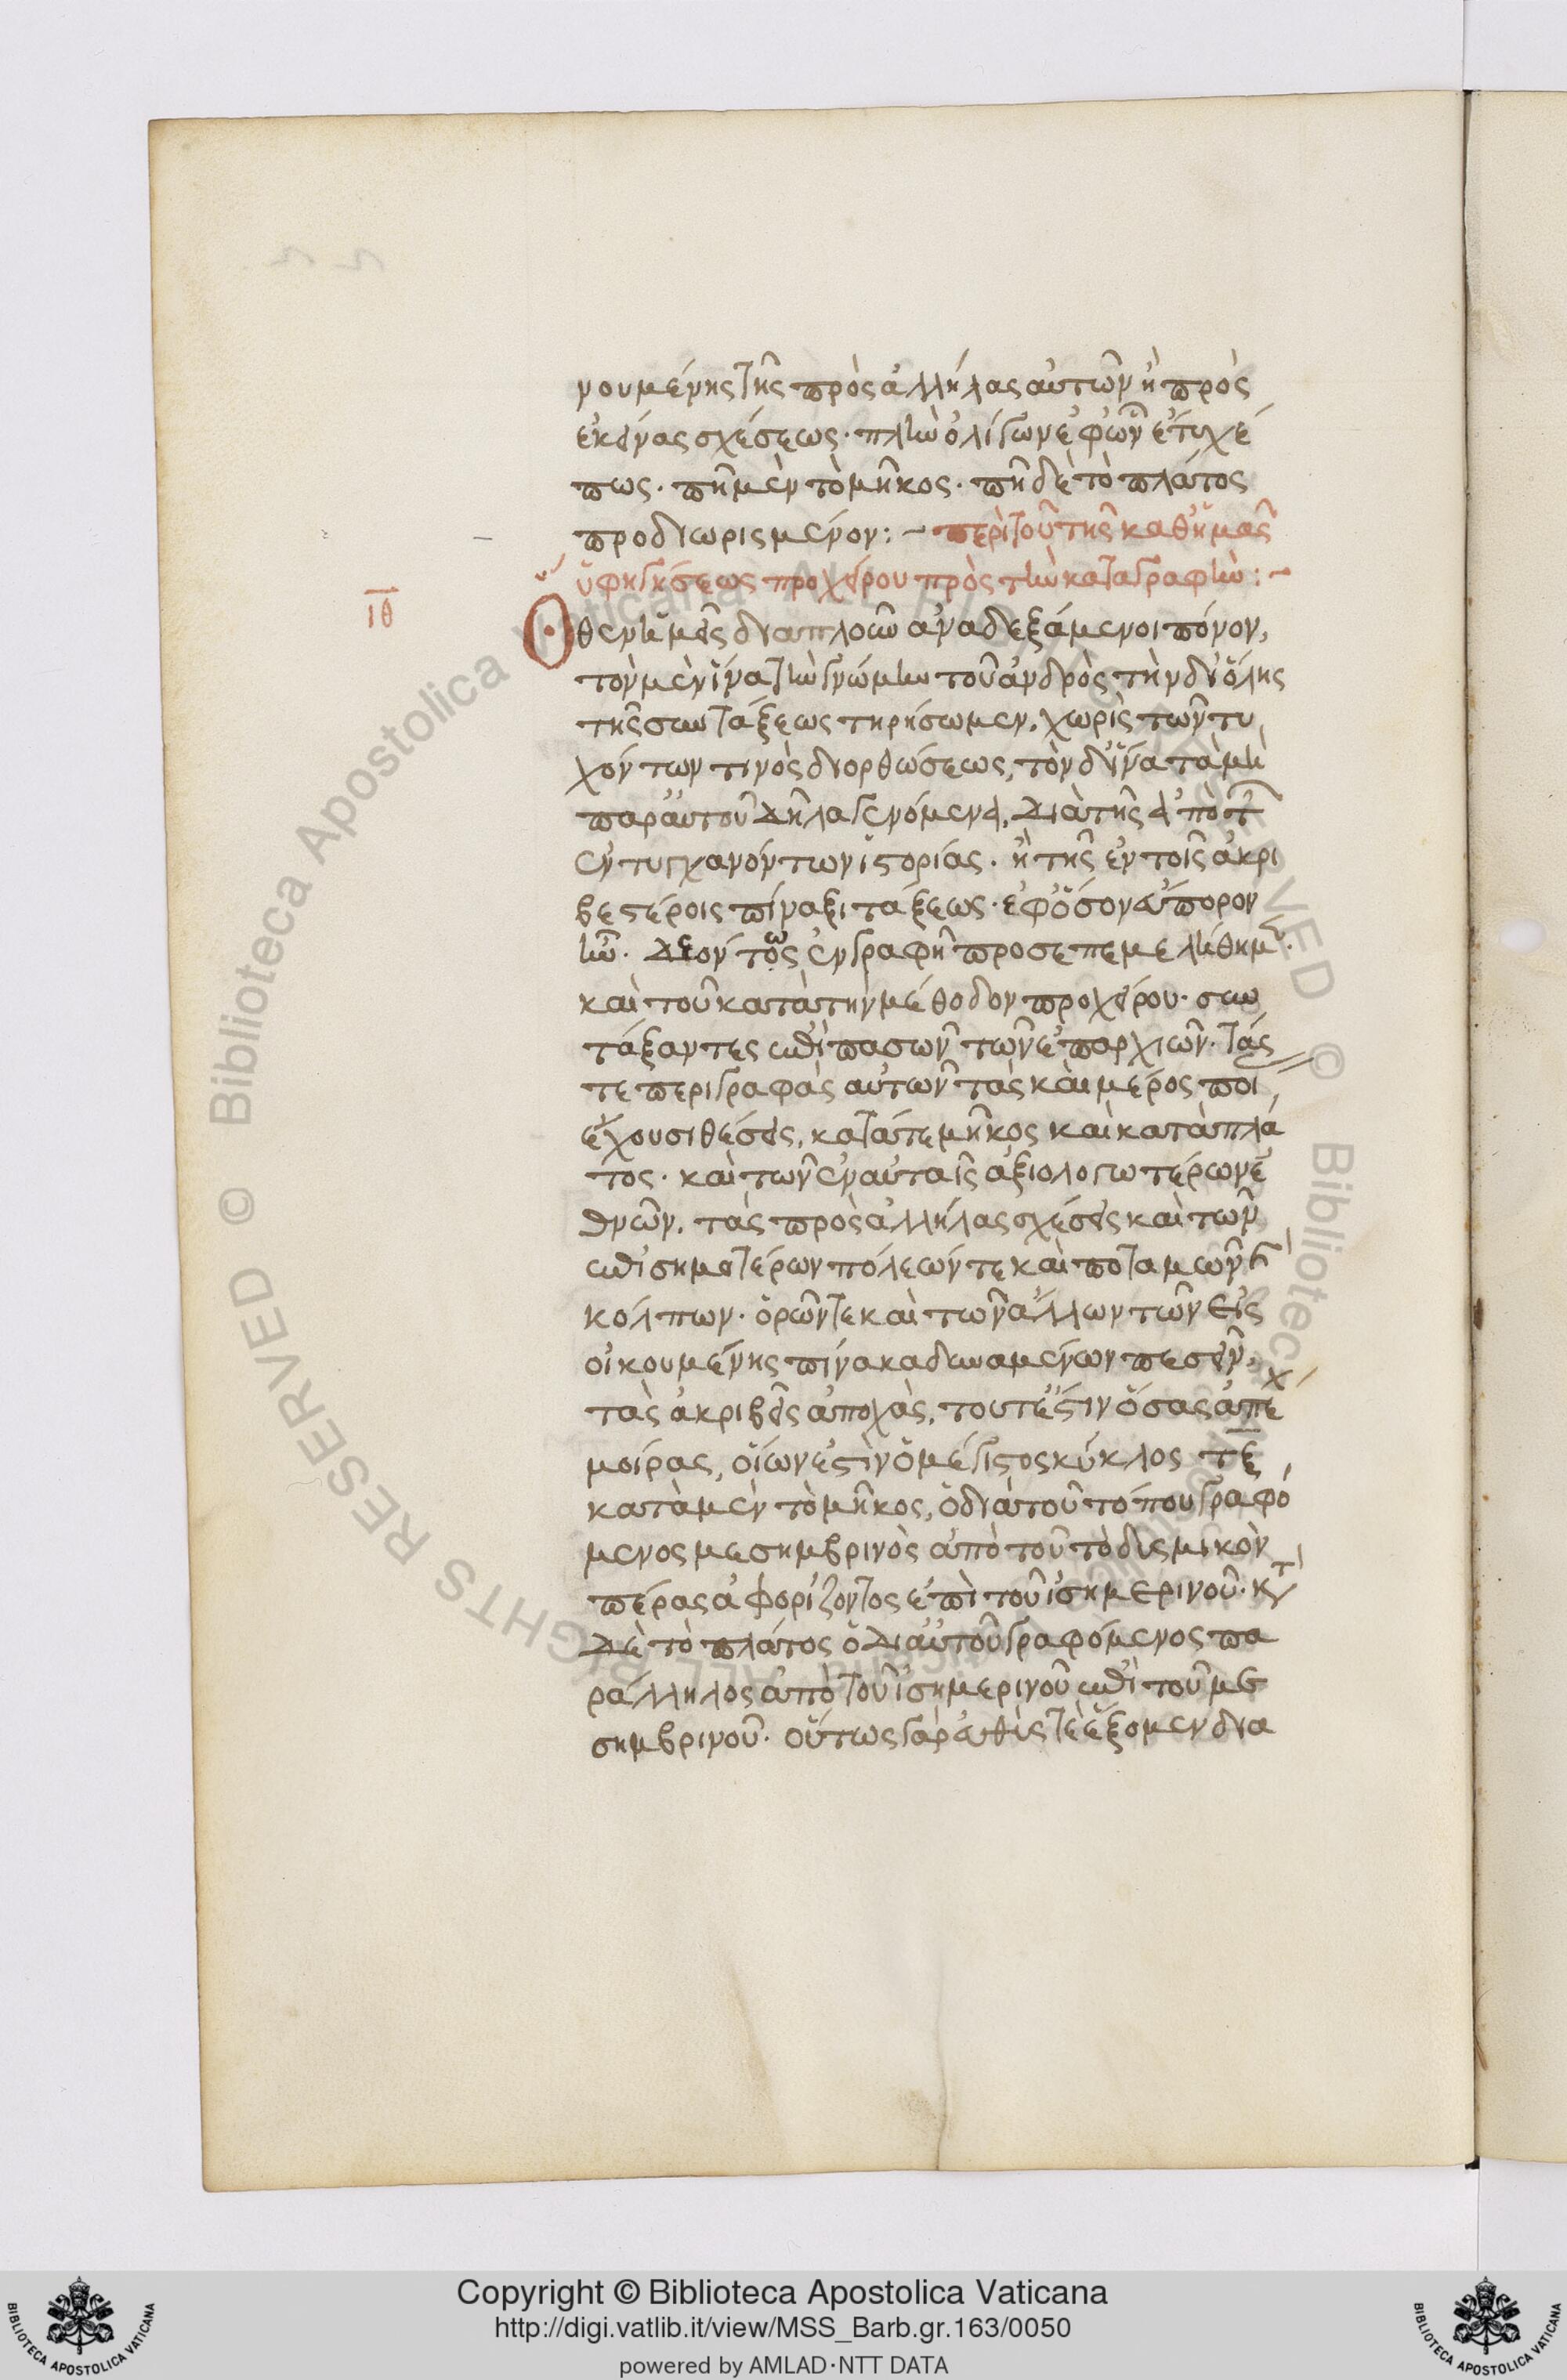 νουμένης τῆς πρὸς ἀλλήλας αὐτῶν ἢ πρὸς
ἐκείνας σχέσεως· πλὴν ὀλίγων ἐφ' ὧν ἔτυχέ
πως· πῆ μὲν τὸ μῆκος· πῆ δὲ τὸ πλάτος
προδιωρισμένον:– περὶ τοῦ τῆς καθ' ἡμᾶς
ὑφηγήσεως προχείρου πρὸς τὴν καταγραφήν:–
ιθ
Ὅθεν ἡμεῖς διαπλοῦν ἀναδεξάμενοι πόνον,
τὸν μὲν ἵνα τὴν γνώμην τοῦ ἀνδρὸς τὴν δι' ὅλης
τῆς συντάξεως τηρήσωμεν, χωρὶς τῶν τυ
χόντων τινὸς διορθώσεως, τὸν δ' ἵνα τὰ μὴ
παρ' αὐτοῦ δῆλα γενόμενα, διὰ τῆς ἀπὸ τ
ἐντυγχανόντων ἱστορίας· ἢ τῆς ἐν τοῖς ἀκρι
βεστέροις πίναξι τάξεως· ἐφ' ὅσον εὔπορον
ἦν· δεόντως ἐνγραφῆ προσεπεμελήθημ
καὶ τοῦ κατὰ τὴν μέθοδον προχείρου· συν
τάξαντες ἐπὶ πασῶν τῶν ἐπαρχιῶν· τάς
τε περιγραφὰς αὐτῶν τὰς καὶ μέρος ποι
ἔχουσι θέσεις, κατά τε μῆκος καὶ κατὰ πλά
τος· καὶ τῶν ἐν αὐταῖς ἀξιολογωτέρων ἐ
θνῶν, τὰς πρὸς ἀλλήλας σχέσεις καὶ τῶν
ἐπισημοτέρων πόλεών τε καὶ ποταμῶν καὶ
κόλπων· ὀρῶν τε καὶ τῶν ἄλλων τῶν εἰς
οἰκουμένης πίνακα δυναμένων πεσεῖν,
τὰς ἀκριβεῖς ἀποχάς, τουτέστιν ὅσας ἀπέχ
μοίρας, οἵων ἐστὶν ὁ μέγιστος κύκλος τξ
κατὰ μὲν τὸ μῆκος, ὁ διὰ τοῦ τόπου γραφό
μενος μεσημβρινὸς ἀπὸ τοῦ τὸ δυσμικὸν
πέρας ἀφορίζοντος ἐπὶ τοῦ ἰσημερινοῦ· κτ
δὲ τὸ πλάτος ὁ δι' αὐτοῦ γραφόμενος πα
ράλληλος ἀπὸ τοῦ ἰσημερινοῦ ἐπὶ τοῦ με
σημβρινοῦ· οὕτως γὰρ εὐθύς τε ἕξομεν δια
Copyright © Biblioteca Apostolica Vaticana
http://digi.vatlib.it/view/MSS_Barb.gr.163/0050
powered by AMLAD·NTT DATA
BIBLIOTECA APOSTOLICA VATICANA
BIBLIOTECA APOSTOLICA VATICANA